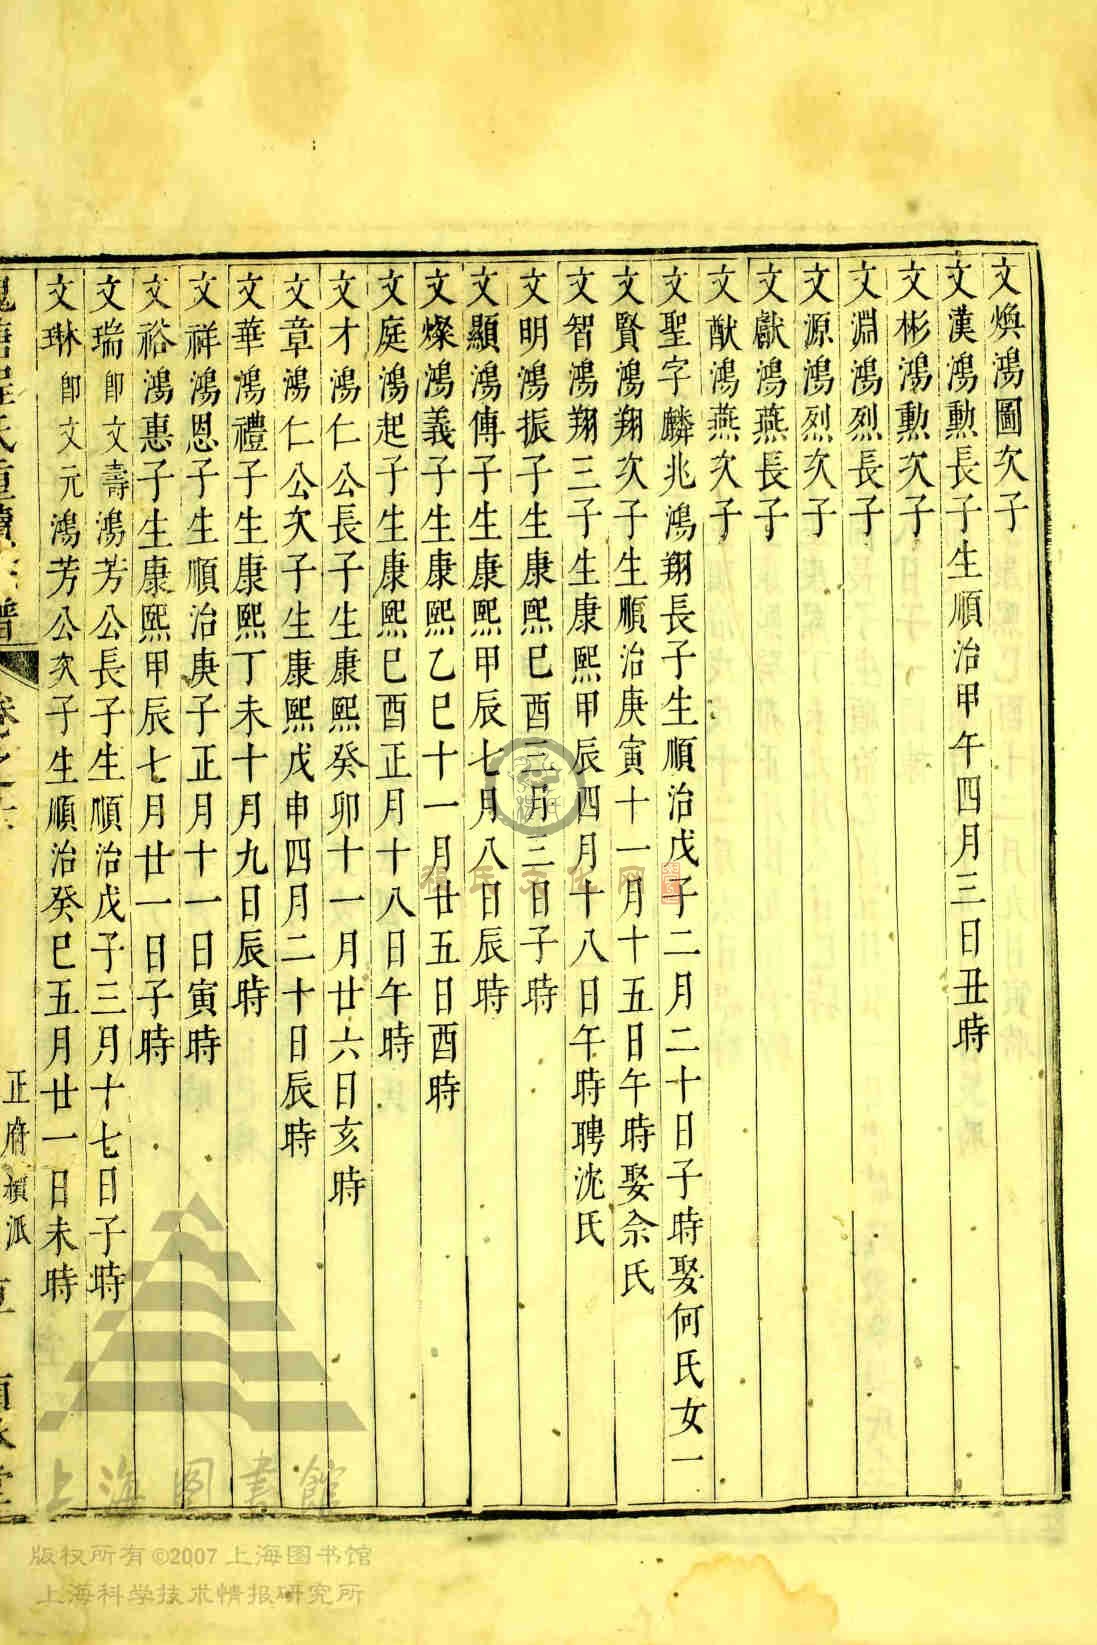 文煥鴻圖次子
文漢鴻勳長子生順治甲午四月三日丑時
文彬鴻勳次子
文淵鴻烈長子
文源鴻烈次子
文獻鴻燕長子
文猷鴻燕次子
文聖字麟兆鴻翔長子生順治戊子二月二十日子時娶何氏女一
文賢鴻翔次子生順治庚寅十一月十五日午時娶佘氏
文智鴻翔三子生康熙甲辰四月十八日午時聘沈氏
文明鴻振子生康熙巳酉三月三日子時
文顯鴻傳子生康熙甲辰七月八日辰時
文燦鴻義子生康熙乙巳十一月廿五日酉時
文庭鴻起子生康熙巳酉正月十八日午時
文才鴻仁公長子生康熙癸卯十一月廿六日亥時
文章鴻仁公次子生康熙戊申四月二十日辰時
文華鴻禮子生康熙丁未十月九日辰時
文祥鴻恩子生順治庚子正月十一日寅時
文裕鴻惠子生康熙甲辰七月廿一日子時
文瑞即文壽鴻芳公長子生順治戊子三月十七日子時
文琳即文元鴻芳公次子生順治癸巳五月廿一日未時
氏重續 譜 卷之 正府 派
移民文化网
上海图书館
版权所有©2007 上海图书馆
上海科学技术情报研究所